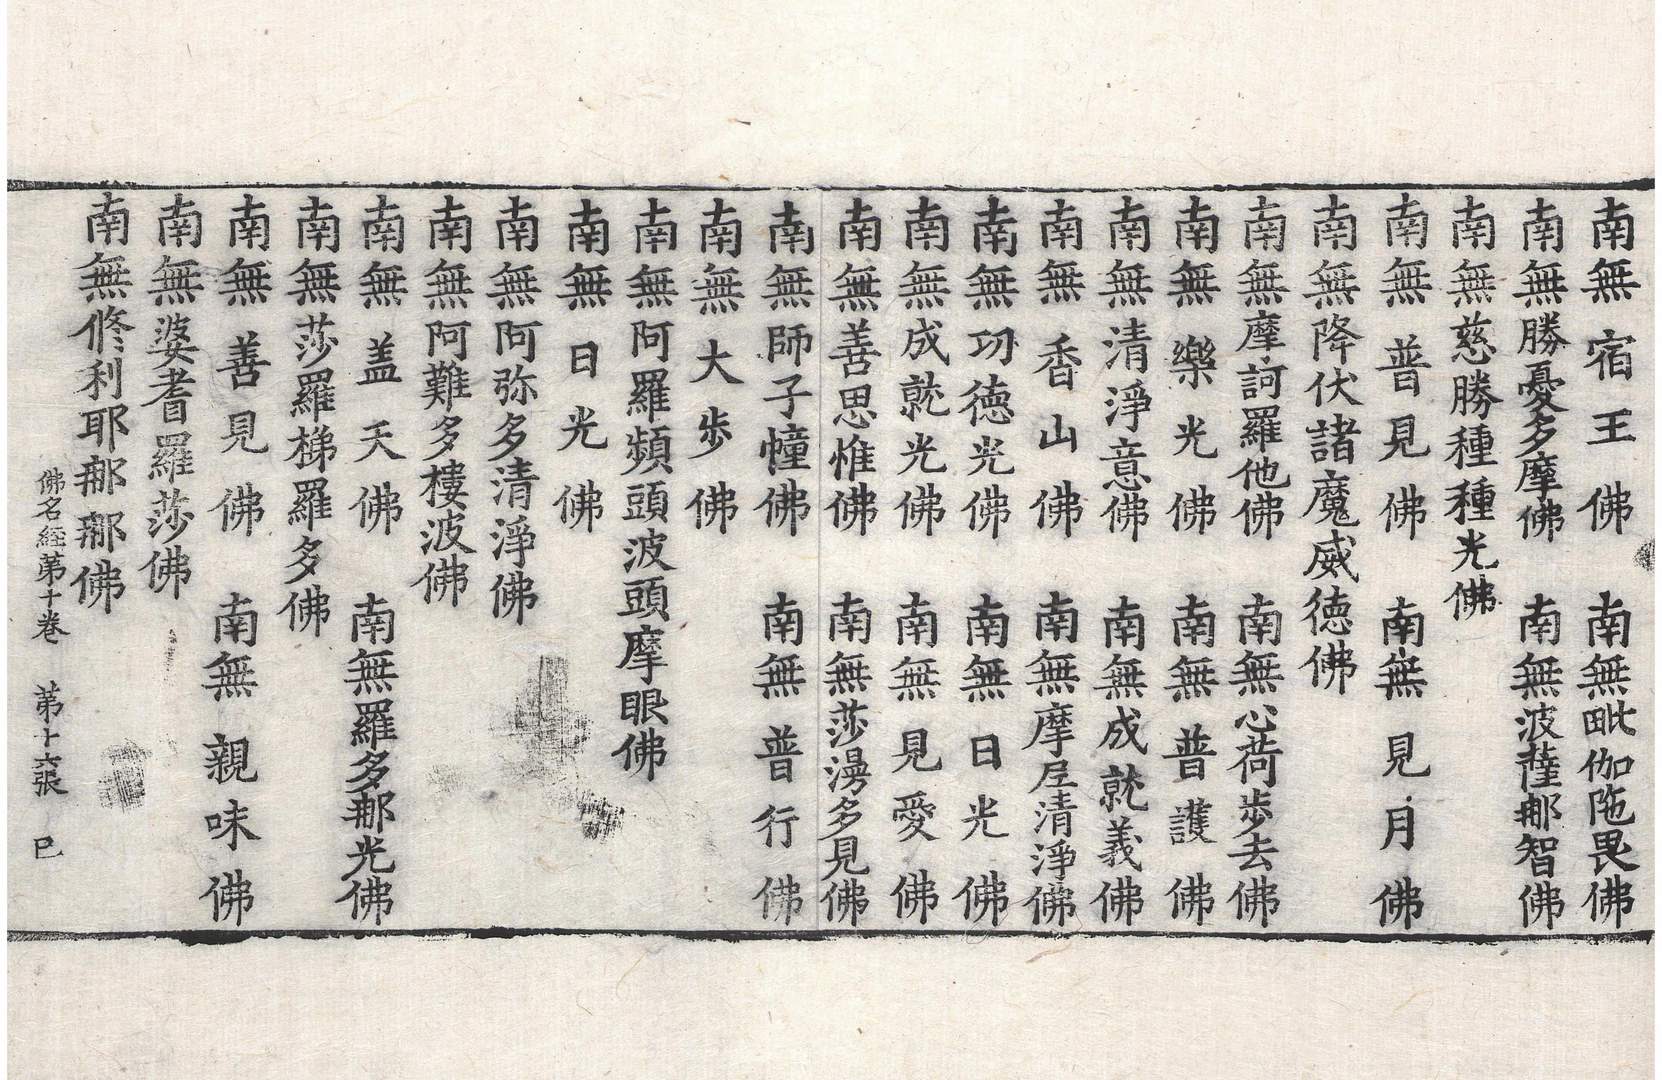 南無宿王佛 南無毗伽陁畏佛
南無勝憂多摩佛 南無波薩那智佛
南無慈勝種種光佛
南無普見佛 南無見月佛
南無降伏諸魔威德佛
南無摩訶羅他佛 南無心荷步去佛
南無樂光佛 南無普護佛
南無清淨意佛 南無成就義佛
南無香山佛 南無摩尼清淨佛
南無功德光佛 南無日光佛
南無成就光佛 南無見愛佛
南無善思惟佛 南無莎漫多見佛
南無師子幢佛 南無普行佛
南無大步佛
南無阿羅頻頭波頭摩眼佛
南無日光佛
南無阿弥多清淨佛
南無阿難多樓波佛
南無盖天佛 南無羅多那光佛
南無莎羅梯羅多佛
南無善見佛 南無親味佛
南無婆耆羅莎佛
南無修利耶那那佛
佛名經第十卷 第十六張 巳